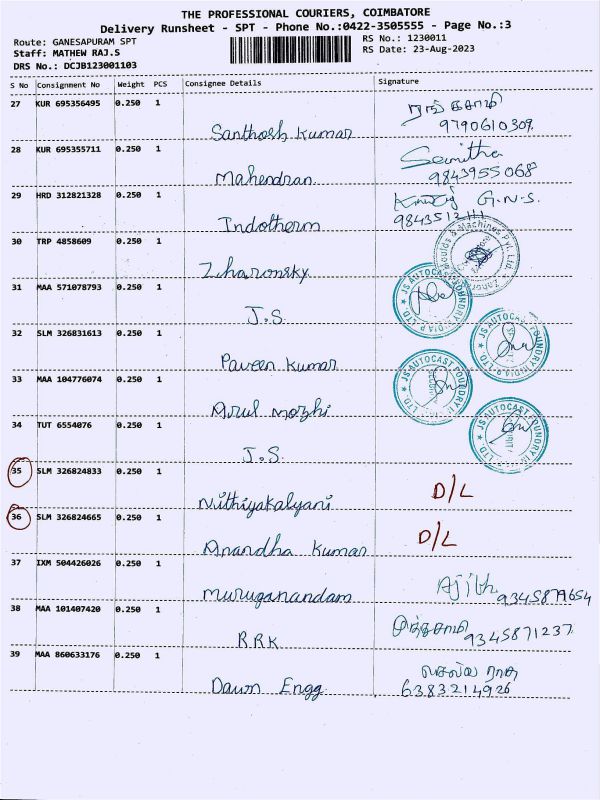 THE PROFESSIONAL COURIERS, COIMBATORE
Delivery Runsheet - SPT - Phone No.:0422-3505555 - Page No.:3
Route: GANESAPURAM SPT RS No.: 1230011
Staff: MATHEW RAJ.S RS Date: 23-Aug-2023
DRS No.: DCJB123001103
S No Consignment No Weight PCS Consignee Details Signature
27 KUR 695356495 0.250 1 ரங்கசாமி
Santhosh Kumar 9790610309
28 KUR 695355711 0.250 1
Mahendran 9843955068
29 HRD 312821328 0.250 1 G.N.S.
Indotherm 9843512111
30 TRP 4858609 0.250 1
Zharonsky
31 MAA 571078793 0.250 1 JS AUTOCAST FOUNDRY INDIA P LTD.
J.S.
32 SLM 326831613 0.250 1 JS AUTOCAST FOUNDRY INDIA P LTD.
Paveen Kumar
33 MAA 104776074 0.250 1 JS AUTOCAST FOUNDRY
Arul mozhi
34 TUT 6554076 0.250 1 JS AUTOCAST FOUNDRY
J.S.
35 SLM 326824833 0.250 1
Nithiyakalyani D/L
36 SLM 326824665 0.250 1
Anandha Kumar D/L
37 IXM 504426026 0.250 1 Ajith
Muruganandam 9345879654
38 MAA 101407420 0.250 1
R.R.K 9345871237
39 MAA 860633176 0.250 1 செல்வ ராசு
Dawn Engg. 6383214926